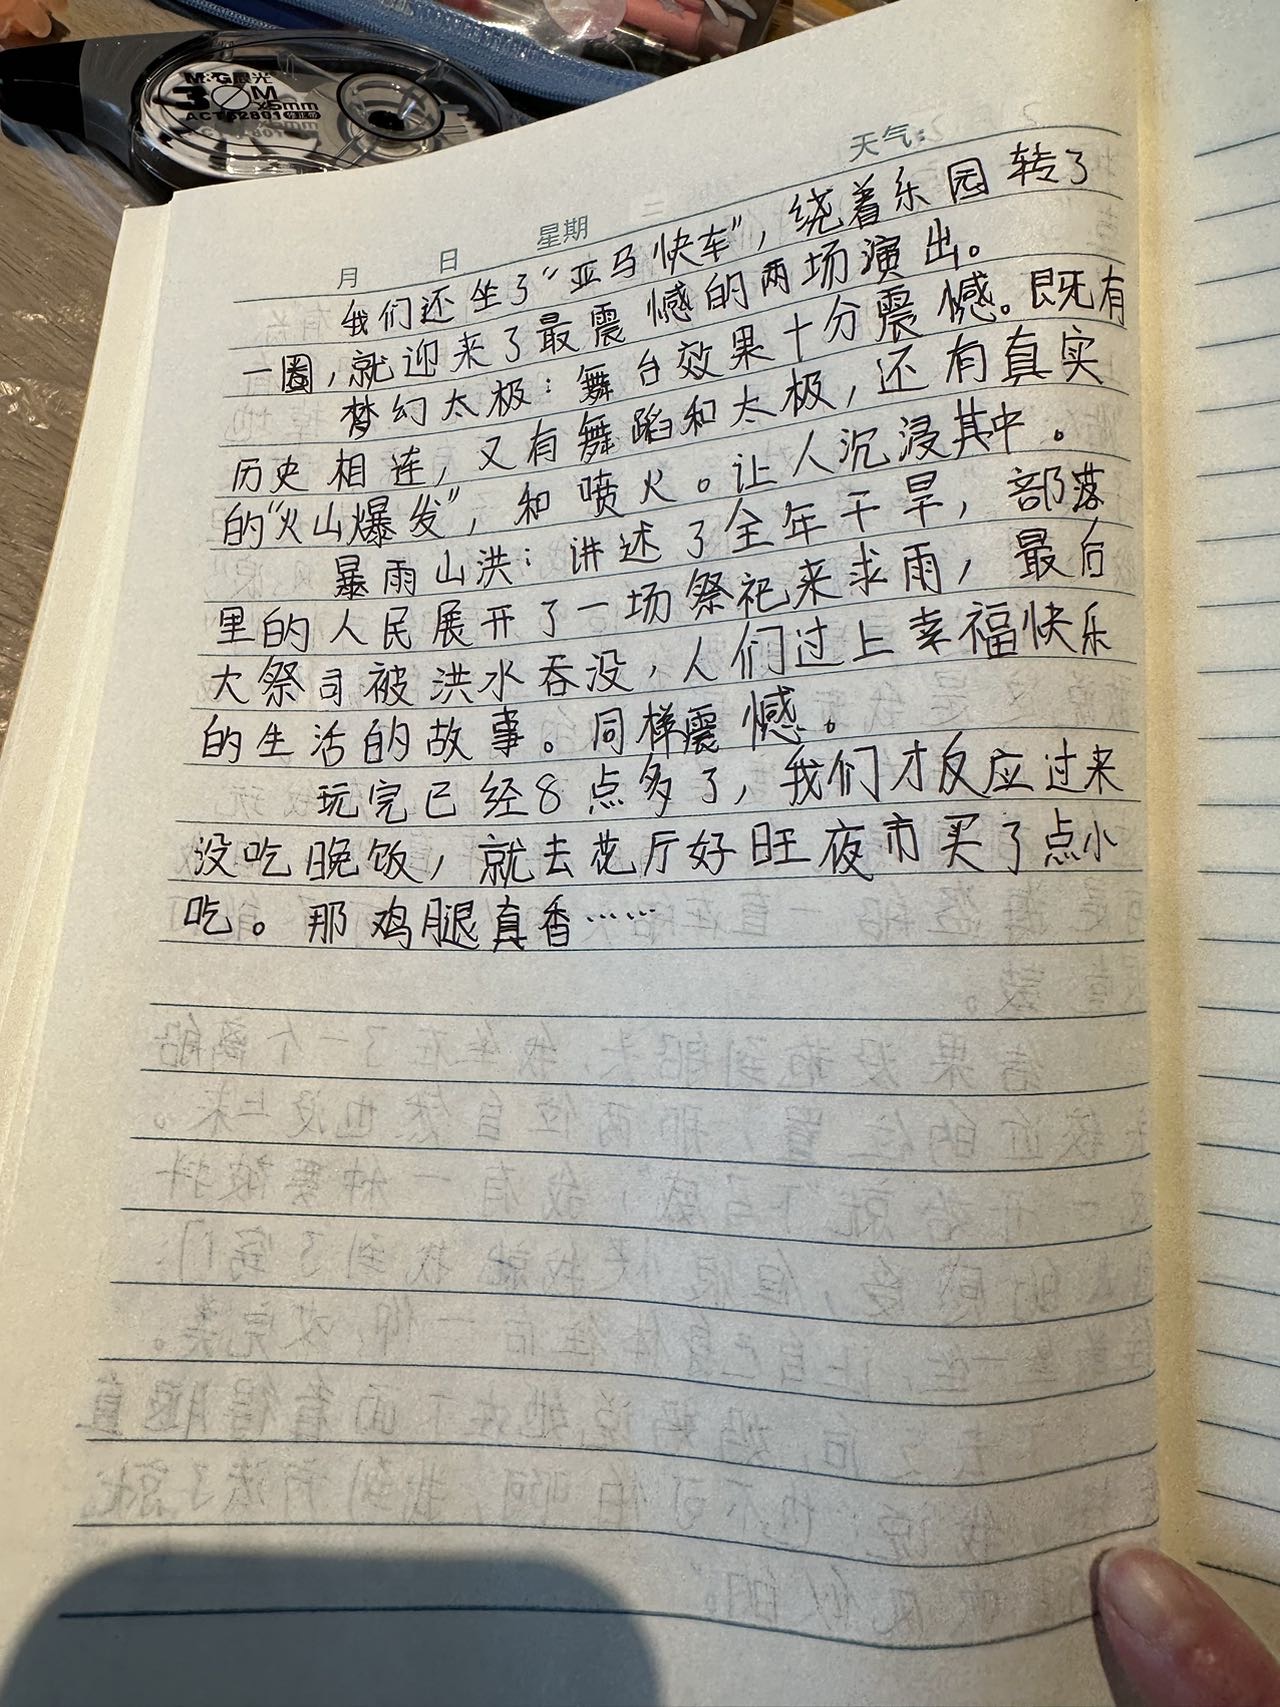 M&G晨光
30M
x5mm
ACT52801
天气:
月 日 星期
我们还坐了“亚马快车”，绕着乐园转了
一圈，就迎来了最震憾的两场演出。
梦幻太极：舞台效果十分震憾。既有
历史相连，又有舞蹈和太极，还有真实
的“火山爆发”，和喷火。让人沉浸其中。
暴雨山洪：讲述了全年干旱，部落
里的人民展开了一场祭祀来求雨，最后
大祭司被洪水吞没，人们过上幸福快乐
的生活的故事。同样震憾。
玩完已经8点多了，我们才反应过来
没吃晚饭，就去花厅好旺夜市买了点小
吃。那鸡腿真香……